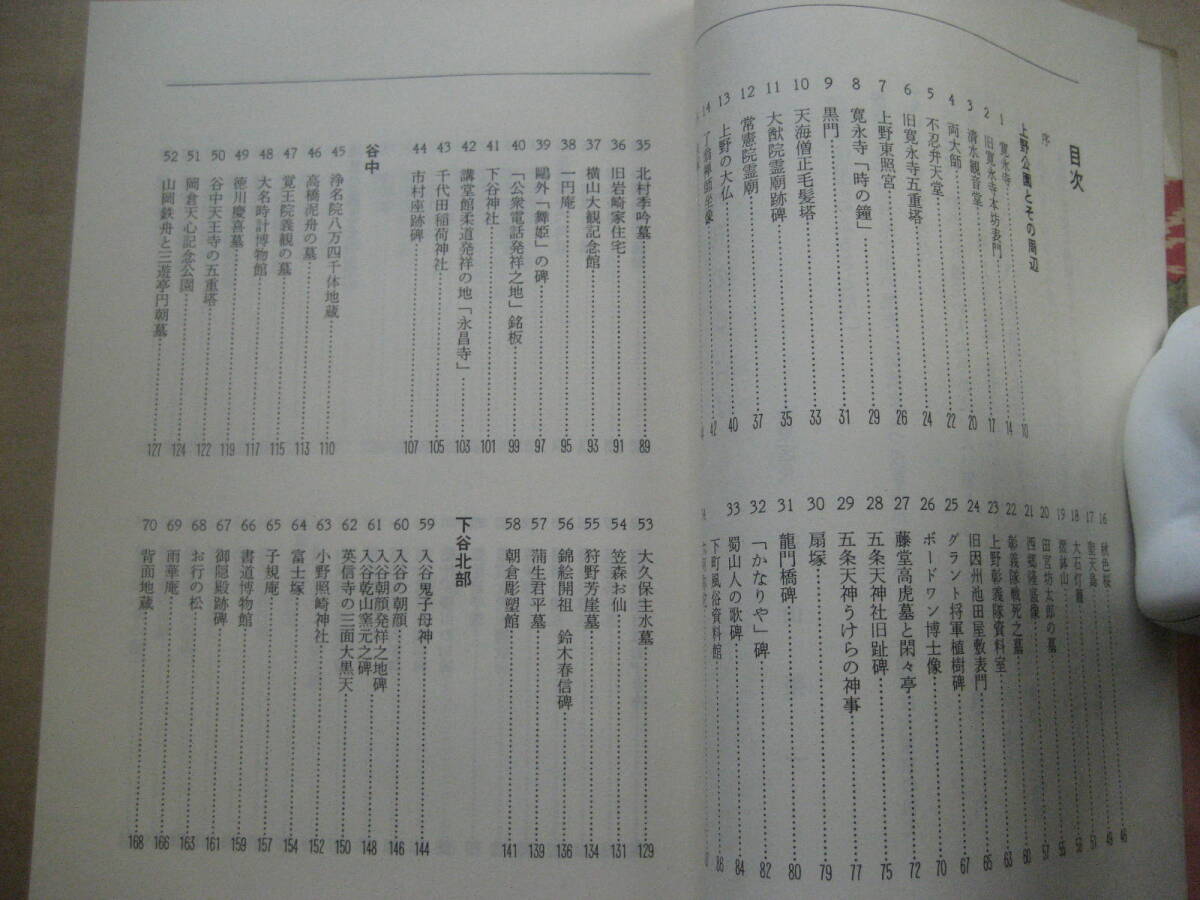 目次
序
上野公園とその周辺
1 寛永寺 10
2 旧寛永寺本坊表門 14
3 清水観音堂 17
4 両大師 20
5 不忍弁天堂 22
6 旧寛永寺五重塔 24
7 上野東照宮 26
8 寛永寺「時の鐘」 29
9 黒門 31
10 天海僧正毛髪塔 33
11 大猷院霊廟跡碑 35
12 常憲院霊廟 37
13 上野の大仏 40
14 了翁禅師坐像 42
16 秋色桜 48
17 聖天島 49
18 大石灯籠 51
19 摺鉢山 55
20 田宮坊太郎の墓 57
21 西郷隆盛像 60
22 彰義隊戦死之墓 63
23 上野彰義隊資料室 65
24 旧因州池田屋敷表門 67
25 グラント将軍植樹碑
26 ボードワン博士像 70
27 藤堂高虎墓と閑々亭 72
28 五条天神社旧趾碑 75
29 五条天神うけらの神事 77
30 扇塚 79
31 龍門橋碑 80
32 「かなりや」碑 82
33 蜀山人の歌碑 84
下町風俗資料館 86
35 北村季吟墓 89
36 旧岩崎家住宅 91
37 横山大観記念館 93
38 一円庵 95
39 鷗外「舞姫」の碑 97
40 「公衆電話発祥之地」銘板 99
41 下谷神社 101
42 講堂館柔道発祥の地「永昌寺」 103
43 千代田稲荷神社 105
44 市村座跡碑 107
谷中
45 浄名院八万四千体地蔵 110
46 高橋泥舟の墓 113
47 覚王院義観の墓 115
48 大名時計博物館 117
49 徳川慶喜墓 119
50 谷中天王寺の五重塔 122
51 岡倉天心記念公園 124
52 山岡鉄舟と三遊亭円朝墓 127
53 大久保主水墓 129
54 笠森お仙 131
55 狩野芳崖墓 134
56 錦絵開祖 鈴木春信碑 136
57 蒲生君平墓 139
58 朝倉彫塑館 141
下谷北部
59 入谷鬼子母神 144
60 入谷の朝顔 146
61 入谷朝顔発祥之地碑
入谷乾山窯元之碑 148
62 英信寺の三面大黒天 150
63 小野照崎神社 152
64 富士塚 154
65 子規庵 157
66 書道博物館 159
67 御隠殿跡碑 161
68 お行の松 163
69 雨華庵 166
70 背面地蔵 168